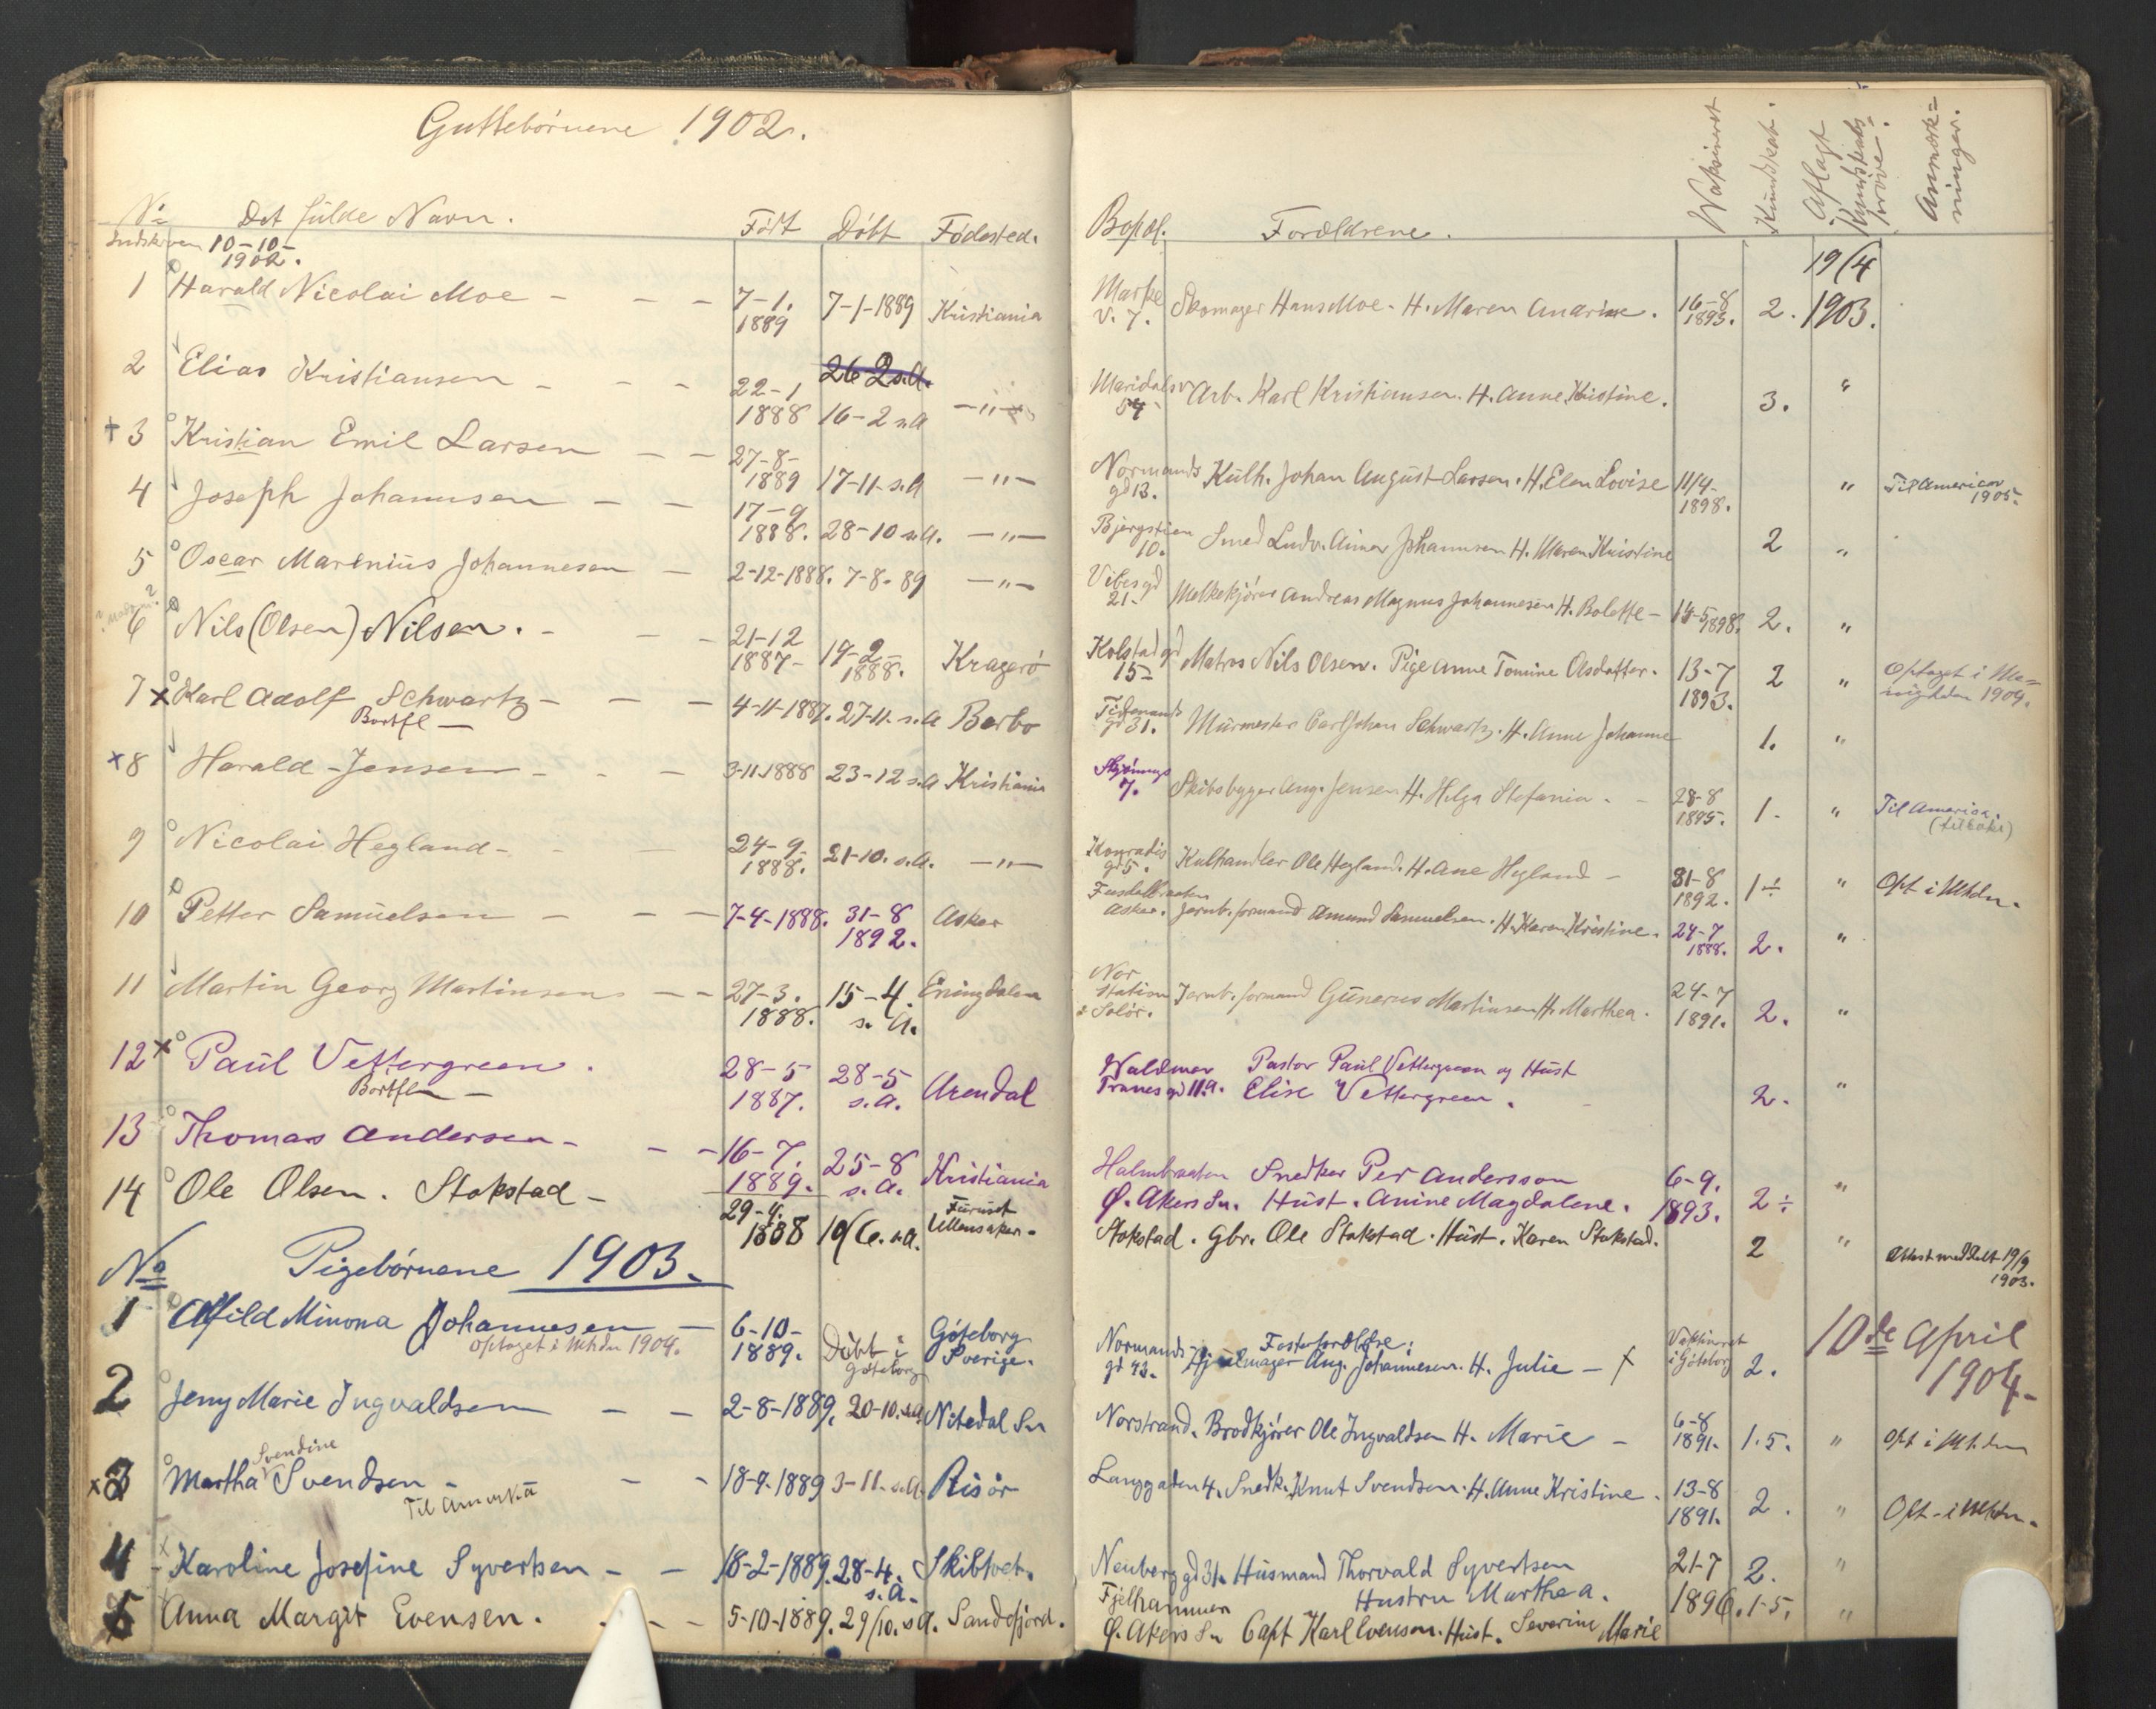 Guttebørnene 1902.
No Det fulde Navn. Født Døbt Fødested.
Indskreven 10-10-1902.
1 Harald Nicolai Moe - - - 7-1. 1889 7-1-1889 Kristiania
2 Elias Kristiansen - - - 22-1 1888 26-2 s.A. 16-2 s.A -"-
+3 Kristian Emil Larsen - - 27-8- 1889 17-11-s.A -"-
4 Joseph Johannsen - - 17-9 1888. 28-10 s.A. -"-
5 Oscar Marenius Johannesen - 2-12-1888. 7-8-89 -"-
6 Nils (Olsen) Nilsen. - - - 21-12 1887- 19-2- 1888. Kragerö
7 x Karl Adolf Schwartz - - - 4-11-1887. 27-11-s.A Barbo
Bortfl -
x8 Harald Jensen - - - 3-11-1888 23-12 s.A Kristiania
9 Nicolai Hegland - - - 24-9- 1888. 21-10. s.A. -"-
10 Petter Samuelsen - - - 7-4-1888. 31-8 1892. Asker
11 Martin Georg Martinsen - - 27-3. 1888. 15-4. s.A. Eningdalen
12 x Paul Vettergreen. 28-5 1887. 28-5 s.A. Arendal
Bortfl -
13 Thomas Andersen - - - 16-7. 1889. 25-8 s.A. Kristiania
14 Ole Olsen. Stokstad - 29-4. 1888 10/6. s.A. Furuset Ullensaker.
No Pigebørnene 1903.
1 Alfild Minona Johannesen - 6-10- 1889. Døbt i Göteborg Göteborg Sverige.
Optaget i Mhdn 1904.
2 Jeny Marie Ingvaldsen - - 2-8-1889. 20-10. s.A Nitedal Sn
Svendine
x3 Martha Svendsen - - - 18-9-1889 3-11-s.A. Risör
Til Amerika
4 Karoline Josefine Syvertsen - - 18-2-1889. 28-4. s.A. Skibtvet.
5 Anna Margit Evensen. - - - 5-10-1889. 29/10. s.A. Sandefjord.
Bopæl. Forældrene. Vaksineret Kundskab. Aflagt Kundskabsprøve. Anmærkninger.
19/4
Markv. 7. Skomager Hans Moe. H. Maren Anarine. 16-8 1893. 2. 1903.
Maridalsv 54 Arb. Karl Kristiansen. H. Anne Kristine. 3. "
Normandsgd 13. Kulh. Johan August Larsen. H. Elen Lovise 11/4- 1898. " Til America 1905.
Bjergstien 10. Smed Ludv. Johannsen H. Maren Kristine 2 "
Vibesgd 21- Melkekjører Andreas Magnus Johannesen H. Bolette - 14-5 1898. 2. "
Kolstadgd 15- Matros Nils Olsen. Pige Anne Tomine Olsdatter. 13-7 1893. 2 " Optaget i Menigheden 1909.
Tidemandsgd 31. Murmester Carl Johan Schwartz. H. Anne Johanne 1. "
7. Skibsbygger Aug. Jensen H. Helga Stefania. - 28-8 1895. 1- " Til America. (tilbake)
Konradisgd 5. Kulhandler Ole Hegland. H. Ane Hegland - 31-8 1892. 1÷ " Opt i Mhdn.
Asker. Jernb. formand Amund Samuelsen. H. Karen Kristine. 24-7 1888. 2. "
Nor Station Solør. Jernb. formand Gunerus Martinsen H. Marthea. 24-7 1891. 2. "
Waldemar Pastor Paul Vettergreen og Hust
Tranesgd 11a. Elise Vettergreen. 2. "
Halmbraaten Snedker Per Andersson 6-9. "
Ø. Akers Sn. Hust. Anine Magdalene. 1893. 2÷
Stokstad. Gbr. Ole Stokstad. Hust. Karen Stokstad. 2 " Attest meddelt 19/9 1903.
Fosterforældre: Vaksineret i Göteborg 10de April 1904-
Normandsgd 43. Aug. Johannesen. H. Julie - 2.
Norstrand. Brødkjører Ole Ingvaldsen H. Marie - 6-8 1891. 1.5. " Opt i Mhdn
Langgaden 4. Snedk. Knut Svendsen. H. Anne Kristine. 13-8 1891. 2. " Opt - i Mhdn.
Neuberggd 31. Husmand Thorvald Syvertsen 21-7 2. "
Hustru Marthea. 1896.
Fjelhammer
Ø. Akers Sn Capt Karl Evensen. Hust. Severine Marie 1-5. "